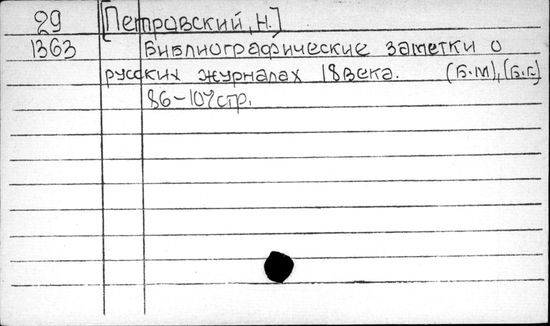 29 [Петровский, Н.]
1363 Библиографические заметки о
русских журналах 18 века. (Б.М), [Б.Г.]
86-107 стр.